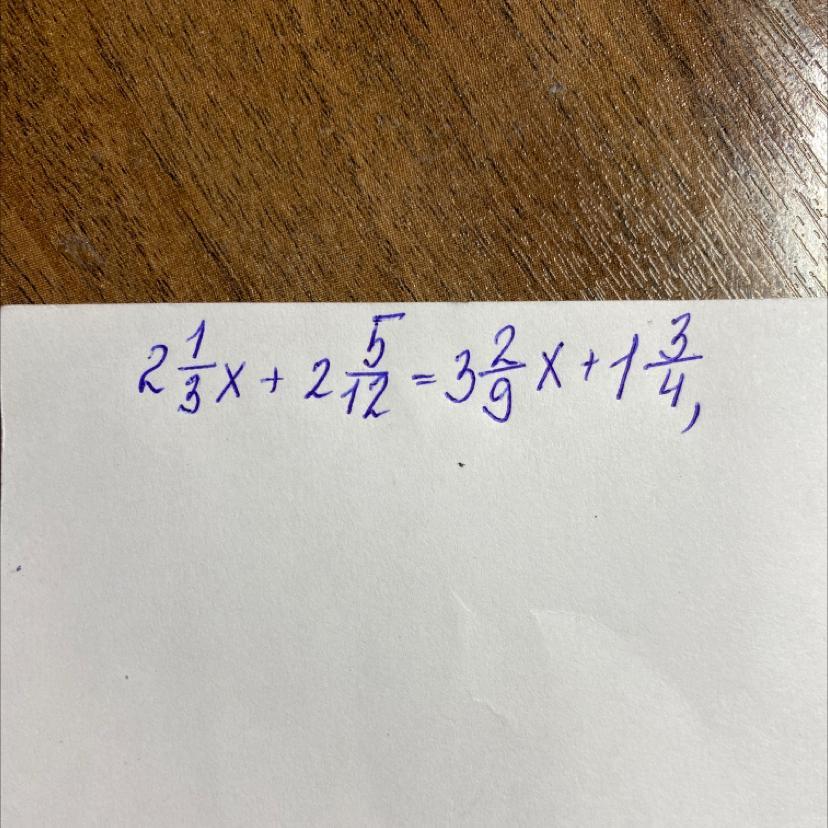 2 1/3 x + 2 5/12 = 3 2/9 x + 1 3/4,